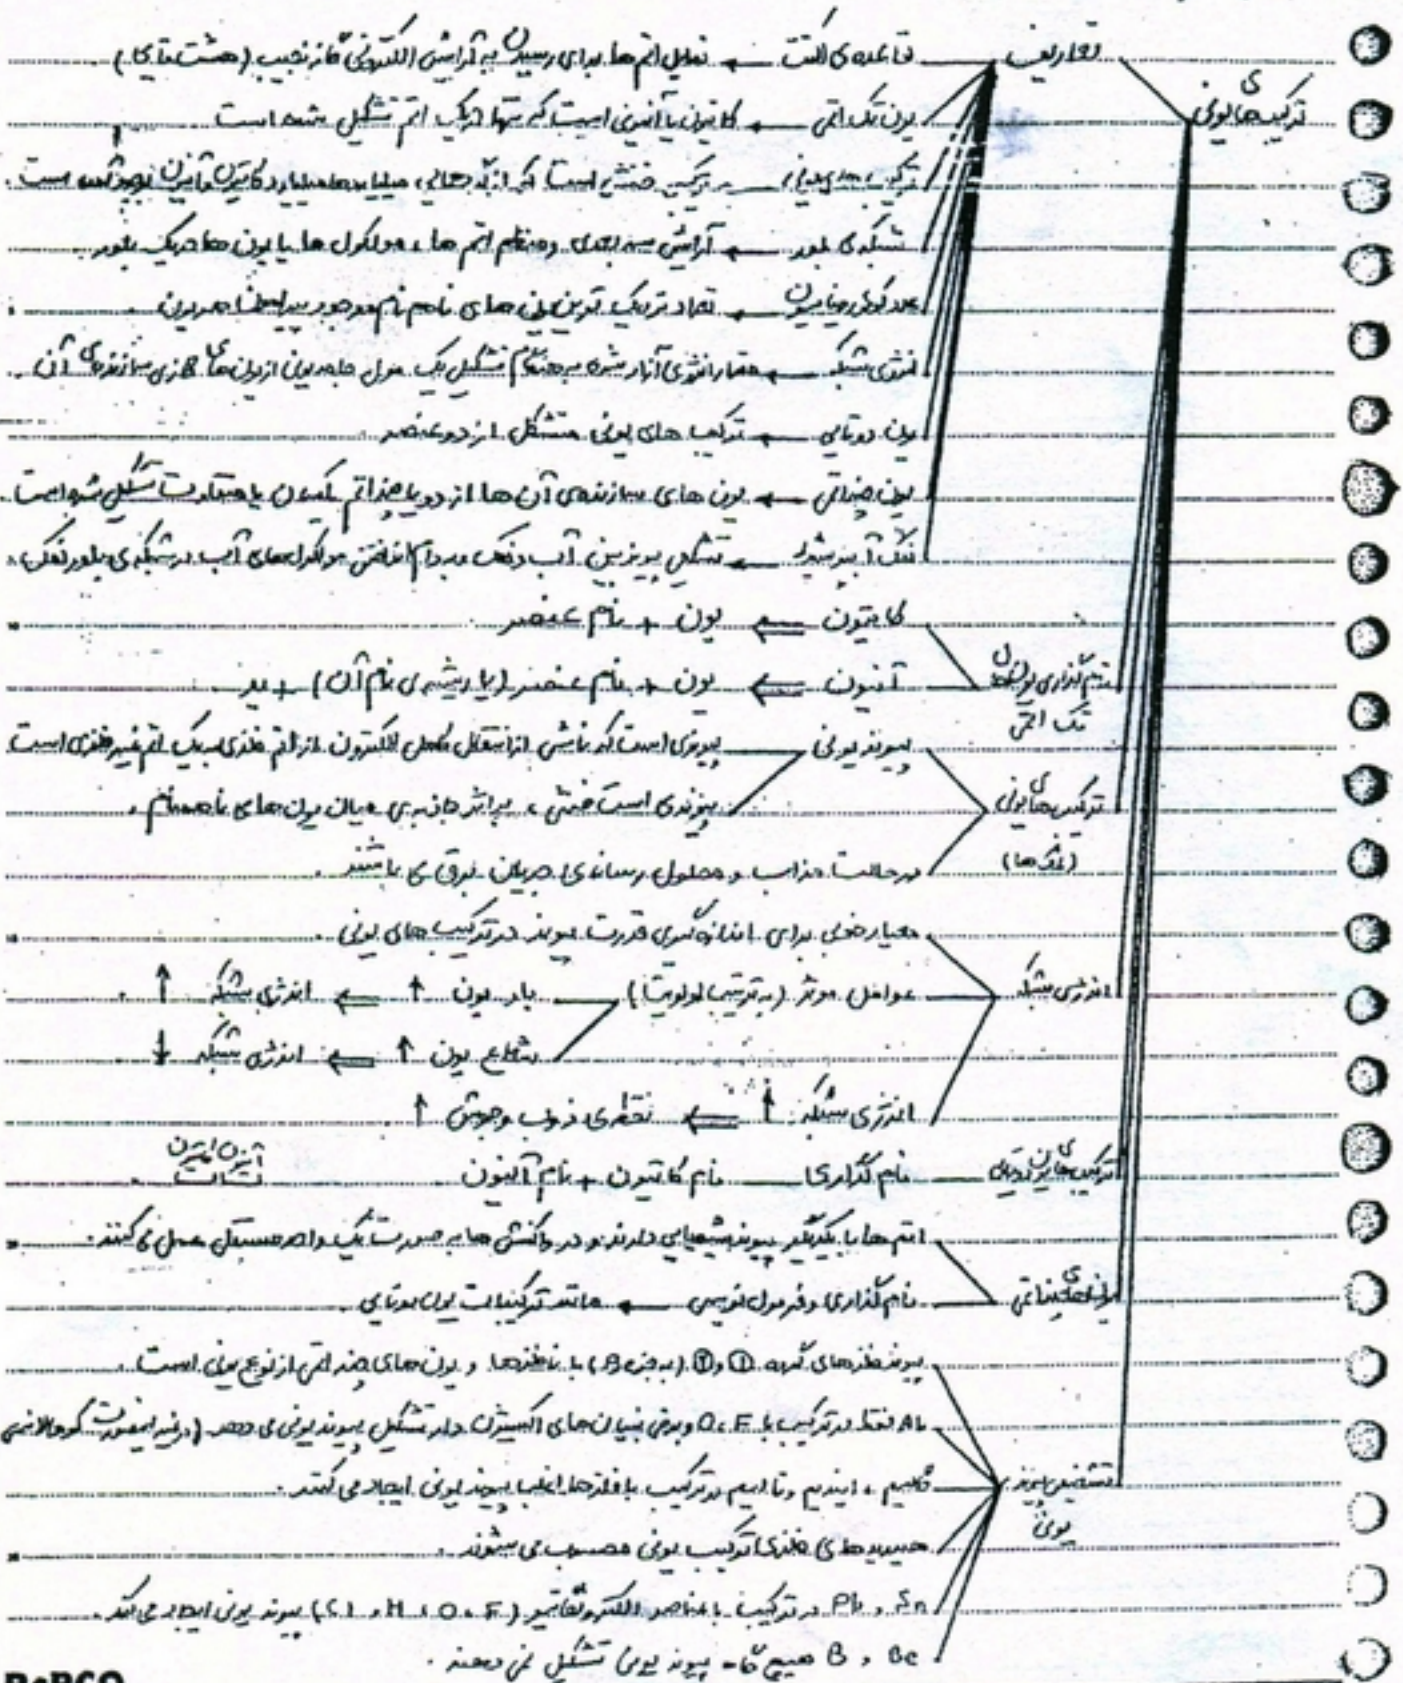 ترکیب های یونی
تعاریف
قاعده ی اکتت ← تمایل اتم ها برای رسیدن به آرایش الکترونی گاز نجیب (هشت تایی)
یون تک اتمی ← کاتیون یا آنیونی است که تنها از یک اتم تشکیل شده است
ترکیب های یونی ← ترکیب خنثی است که از گرد هم آیی میلیاردها میلیارد کاتیون و آنیون بوجود آمده است.
شبکه ی بلور ← آرایش سه بعدی و منظم اتم ها، مولکول ها یا یون ها در یک بلور
عدد کوئوردیناسیون ← تعداد نزدیک ترین یون های ناهم نام موجود پیرامون هر یون
انرژی شبکه ← مقدار انرژی آزاد شده به هنگام تشکیل یک مول جامد یونی از یون های گازی سازنده ی آن
یون دوتایی ← ترکیب های یونی متشکل از دو عنصر
یون چنداتمی ← یون های سازنده ی آن ها از دو یا چند اتم یکسان یا متفاوت تشکیل شده است.
نمک آبپوشیده ← تشکیل پیوند بین آب و نمک و به دام انداختن مولکول های آب در شبکه ی بلور نمک،
نام گذاری یون های تک اتمی
کاتیون ⇐ یون + نام عنصر
آنیون ⇐ یون + نام عنصر (یا ریشه ی نام آن) + ید
ترکیب های یونی (نمک ها)
پیوند یونی
پیوندی است که ناشی از انتقال کامل الکترون از اتم فلزی به یک اتم غیر فلزی است
پیوندی است خنثی، بر اثر جاذبه ی میان یون های ناهمنام.
در حالت مذاب و محلول رسانای جریان برق می باشند.
انرژی شبکه
معیار خوبی برای اندازه گیری قدرت پیوند در ترکیب های یونی.
عوامل موثر (به ترتیب اولویت)
بار یون ↑ ⇐ انرژی شبکه ↑
شعاع یون ↑ ⇐ انرژی شبکه ↓
انرژی شبکه ↑ ⇐ نقطه ی ذوب و جوش ↑
ترکیب های یونی دوتایی
نام گذاری نام کاتیون + نام آنیون
یون های چنداتمی
اتم ها با یکدیگر پیوند شیمیایی دارند و در واکنش ها به صورت یک واحد مستقل عمل می کنند.
نام گذاری و فرمول نویسی ← مانند ترکیبات یونی دوتایی
تشخیص پیوند یونی
پیوند فلزهای گروه ① و ② (به جز Be) با نافلزها و یون های چند اتمی از نوع یونی است.
Al فقط در ترکیب با O، F و برخی بنیان های اکسیژن دار تشکیل پیوند یونی می دهد (در غیر اینصورت کووالانسی
گالیم، ایندیم و تالیم در ترکیب با نافلزها اغلب پیوند یونی ایجاد می کنند.
هیدریدهای فلزی ترکیب یونی محسوب می شوند.
Sn و Pb در ترکیب با عناصر الکترونگاتیو (Cl، H، O، F) پیوند یونی ایجاد می کند.
Be و B هیچ گاه پیوند یونی تشکیل نمی دهند.